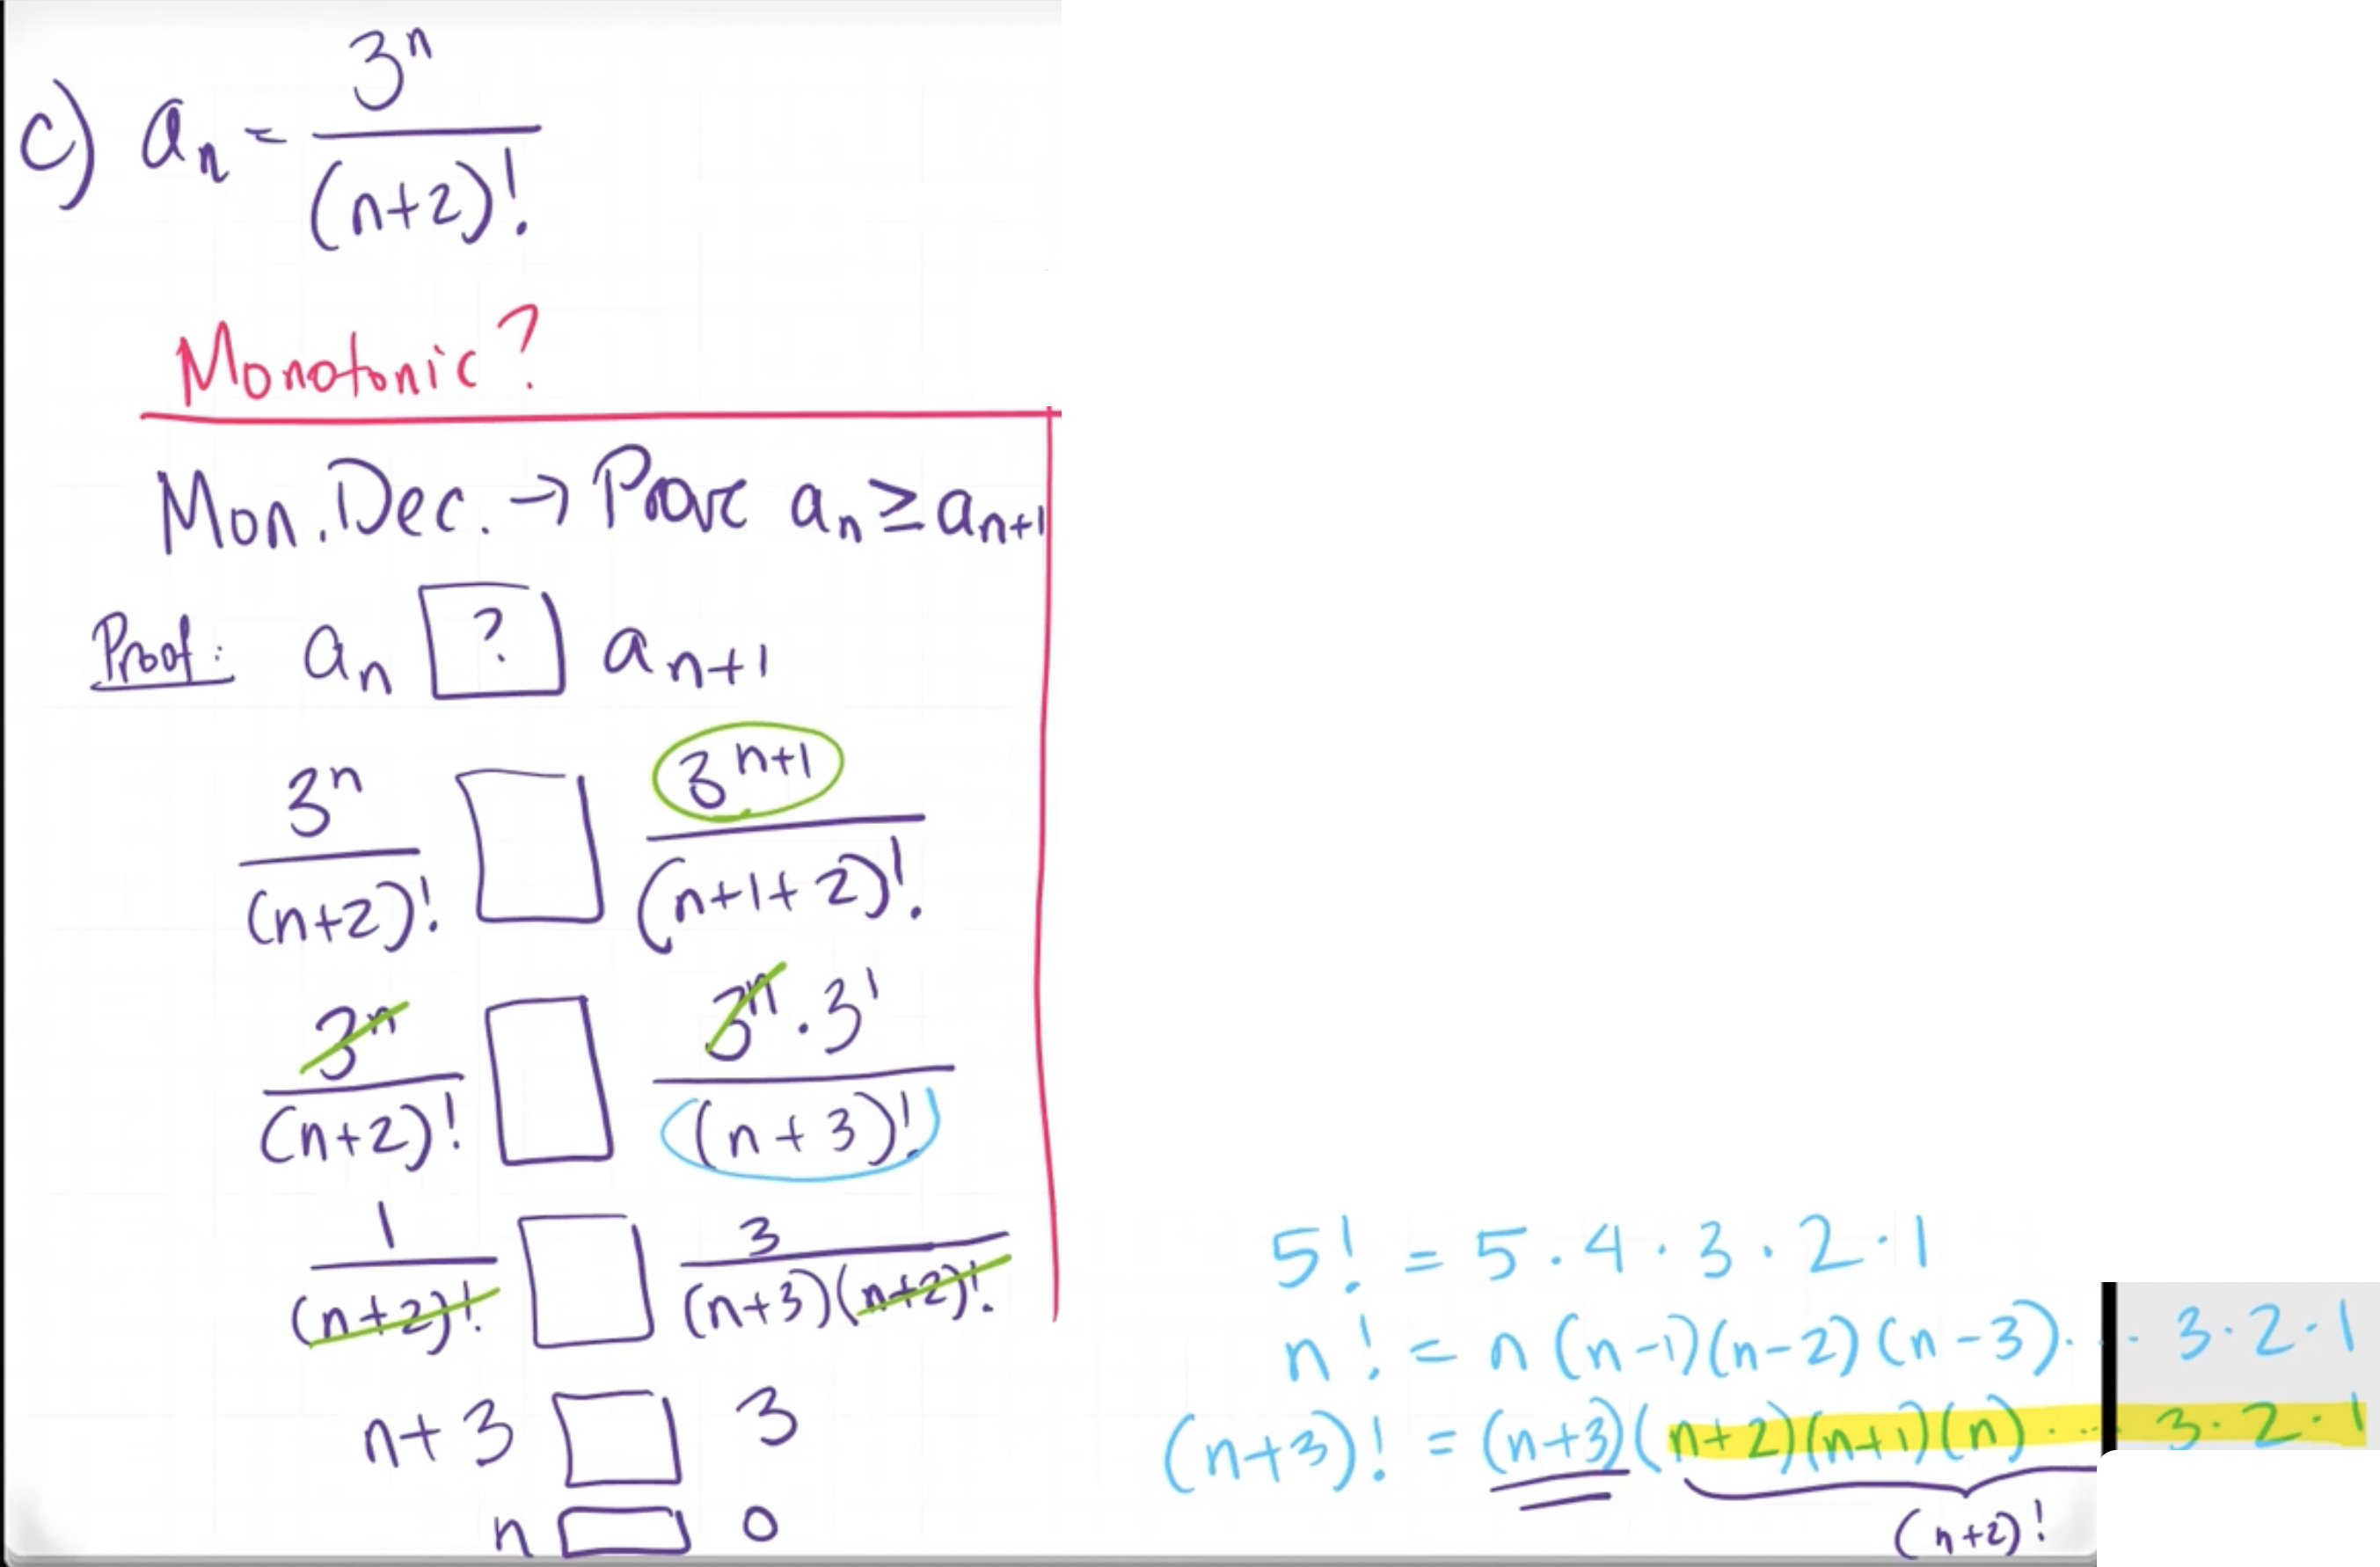 c) aₙ = 3ⁿ / (n+2)!
Monotonic?
Mon. Dec. → Prove aₙ ≥ aₙ₊₁
Proof: aₙ [?] aₙ₊₁
3ⁿ / (n+2)! □ 3ⁿ⁺¹ / (n+1+2)!
3ⁿ / (n+2)! □ 3ⁿ · 3¹ / (n+3)!
1 / (n+2)! □ 3 / (n+3)(n+2)!
n+3 □ 3
n □ 0
5! = 5 · 4 · 3 · 2 · 1
n! = n (n-1)(n-2)(n-3)· ·· 3·2·1
(n+3)! = (n+3)(n+2)(n+1)(n)· ··· 3·2·1
(n+2)!